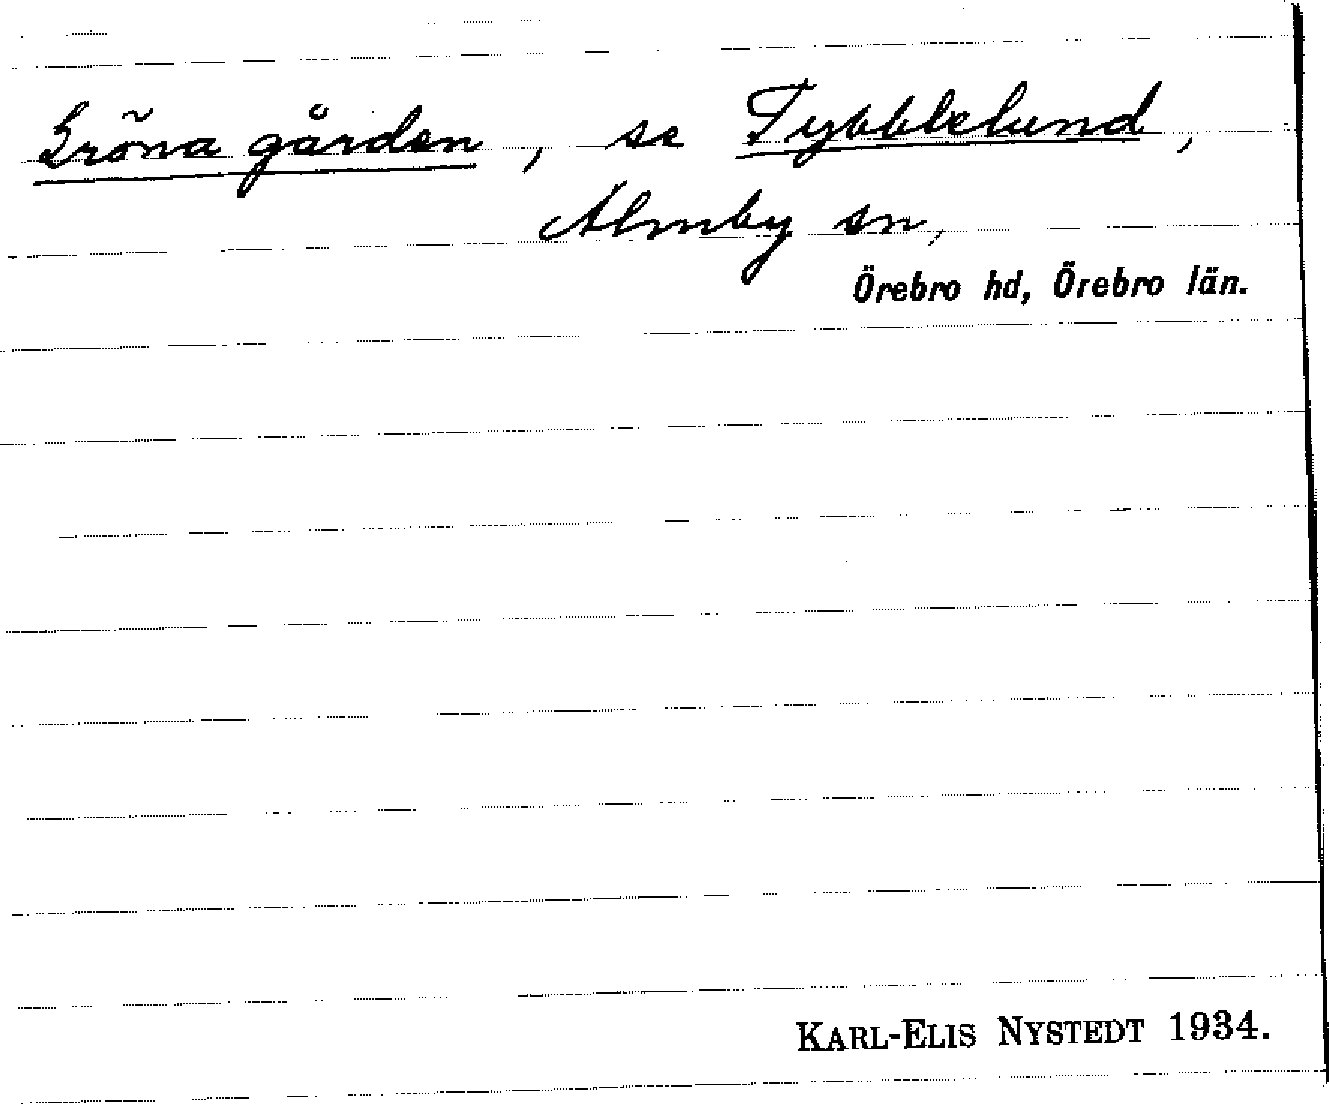 Gröna gården, se Tybblelund,
Almby sn,
Örebro hd, Örebro län.
KARL-ELIS NYSTEDT 1934.